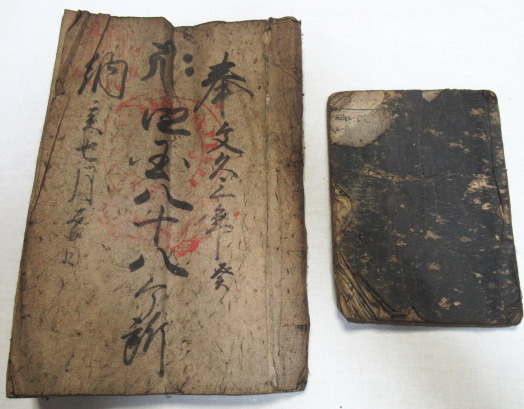 奉 文久三年癸
四国八十八ヶ所
納 亥七月吉日